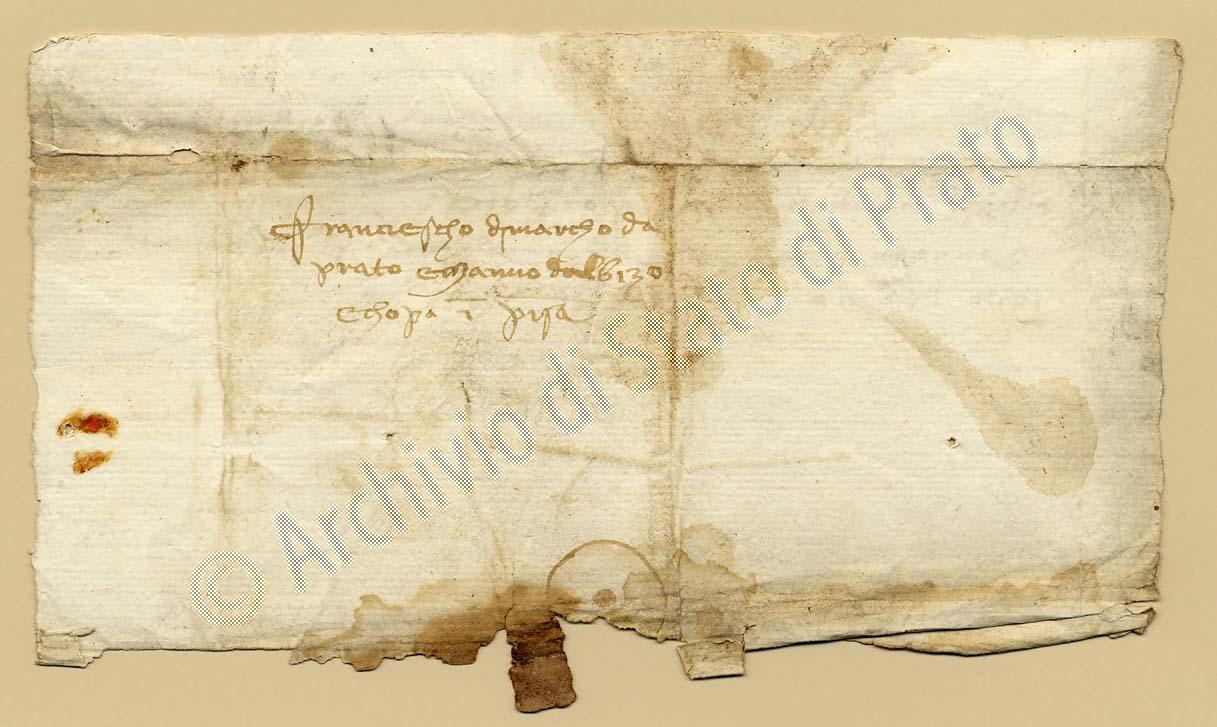 Franciescho dj marcho da
prato e Manno dalbizo
e chopa i pisa
© Archivio di Stato di Prato